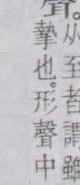 聲。
从至者謂雖
摯也。形聲中